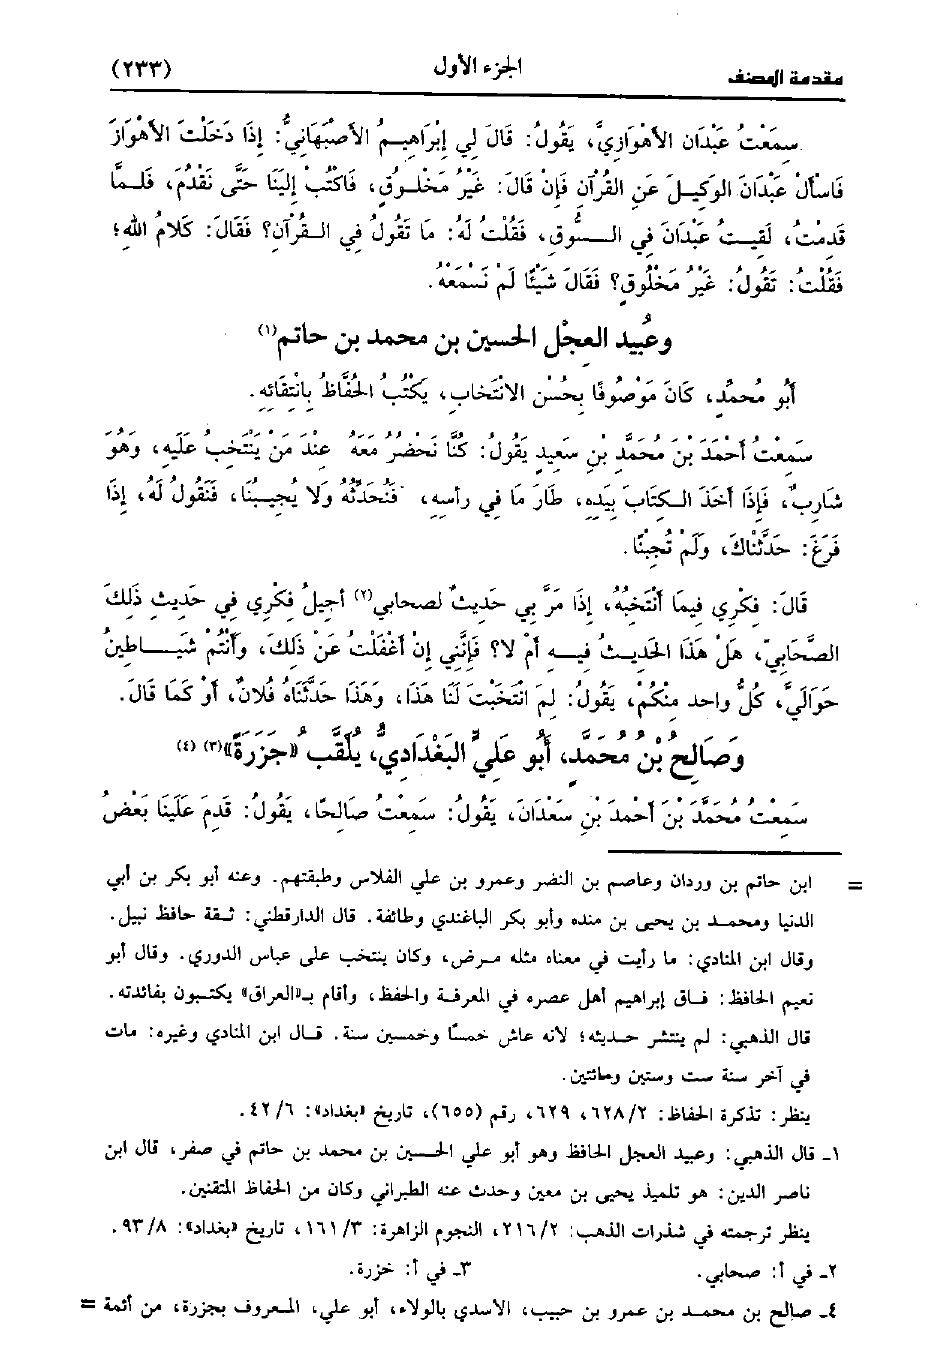 مقدمة المصنف الجزء الأول (٢٣٣)
سَمِعْتُ عَبْدَان الأهْوَازِيَّ، يَقُولُ: قَالَ لِي إِبْرَاهِيمُ الأصْبَهَانِيُّ: إِذَا دَخَلْتَ الأهْوَازَ
فَاسْأَلْ عَبْدَانَ الوَكِيلَ عَنِ القُرْآنِ فَإِنْ قَالَ: غَيْرُ مَخْلُوقٍ، فَاكْتُبْ إِلَيْنَا حَتَّى نَقْدُمَ، فَلَمَّا
قَدِمْتُ، لَقِيتُ عَبْدَانَ فِي السُّوقِ، فَقُلْتُ لَهُ: مَا تَقُولُ فِي القُرْآنِ؟ فَقَالَ: كَلامُ اللهِ؛
فَقُلْتُ: تَقُولُ: غَيْرُ مَخْلُوقٍ؟ فَقَالَ شَيْئًا لَمْ نَسْمَعْهُ.
وعُبيد العجْلِ الحسين بن محمد بن حاتم(١)
أَبُو مُحَمَّدٍ، كَانَ مَوْصُوفًا بِحُسْنِ الانْتِخَابِ، يَكْتُبُ الحُفَّاظُ بِانْتِقَائِهِ.
سَمِعْتُ أَحْمَدَ بْنَ مُحَمَّدِ بْنِ سَعِيدٍ يَقُولُ: كُنَّا نَحْضُرُ مَعَهُ عِنْدَ مَنْ يَنْتَخِبُ عَلَيْهِ، وَهُوَ
شَارِبٌ، فَإِذَا أَخَذَ الكِتَابَ بِيَدِهِ، طَارَ مَا فِي رَأْسِهِ، فَنُحَدِّثُهُ وَلا يُجِيبُنَا، فَنَقُولُ لَهُ، إِذَا
فَرَغَ: حَدَّثْنَاكَ، وَلَمْ تُجِبْنَا.
قَالَ: فِكْرِي فِيمَا أَنْتَخِبُهُ، إِذَا مَرَّ بِي حَدِيثٌ لصحابي(٢) أُجِيلُ فِكْرِي فِي حَدِيثِ ذَلِكَ
الصَّحَابِيِّ، هَلْ هَذَا الحَدِيثُ فِيهِ أَمْ لا؟ فَإِنَّنِي إِنْ أَغْفَلْتُ عَنْ ذَلِكَ، وَأَنْتُمْ شَيَاطِينُ
حَوَالَيَّ، كُلُّ وَاحِدٍ مِنْكُمْ، يَقُولُ: لِمَ انْتَخَبْتَ لَنَا هَذَا، وَهَذَا حَدَّثَنَاهُ فُلانٌ، أَوْ كَمَا قَالَ.
وَصَالِحُ بْنُ مُحَمَّدٍ، أَبُو عَلِيٍّ البَغْدَادِيُّ، يُلَقَّبُ «جَزَرَةَ»(٣) (٤)
سَمِعْتُ مُحَمَّدَ بْنَ أَحْمَدَ بْنِ سَعْدَانَ، يَقُولُ: سَمِعْتُ صَالِحًا، يَقُولُ: قَدِمَ عَلَيْنَا بَعْضُ
= ابن حاتم بن وردان وعاصم بن النضر وعمرو بن علي الفلاس وطبقتهم. وعنه أبو بكر بن أبي
الدنيا ومحمد بن يحيى بن منده وأبو بكر الباغندي وطائفة. قال الدارقطني: ثقة حافظ نبيل.
وقال ابن المنادي: ما رأيت في معناه مثله مرض، وكان ينتخب على عباس الدوري. وقال أبو
نعيم الحافظ: فاق إبراهيم أهل عصره في المعرفة والحفظ، وأقام بـ«العراق» يكتبون بفائدته.
قال الذهبي: لم ينتشر حديثه؛ لأنه عاش خمسًا وخمسين سنة. قال ابن المنادي وغيره: مات
في آخر سنة ست وستين ومائتين.
ينظر: تذكرة الحفاظ: ٦٢٨/٢، ٦٢٩، رقم (٦٥٥)، تاريخ «بغداد»: ٤٢/٦.
١ـ قال الذهبي: وعبيد العجل الحافظ وهو أبو علي الحسين بن محمد بن حاتم في صفر، قال ابن
ناصر الدين: هو تلميذ يحيى بن معين وحدث عنه الطبراني وكان من الحفاظ المتقنين.
ينظر ترجمته في شذرات الذهب: ٢١٦/٢، النجوم الزاهرة: ١٦١/٣، تاريخ «بغداد»: ٩٣/٨.
٢ـ في أ: صحابي. ٣ـ في أ: خزرة.
٤ـ صالح بن محمد بن عمرو بن حبيب، الأسدي بالولاء، أبو علي، المعروف بجزرة، من أئمة =